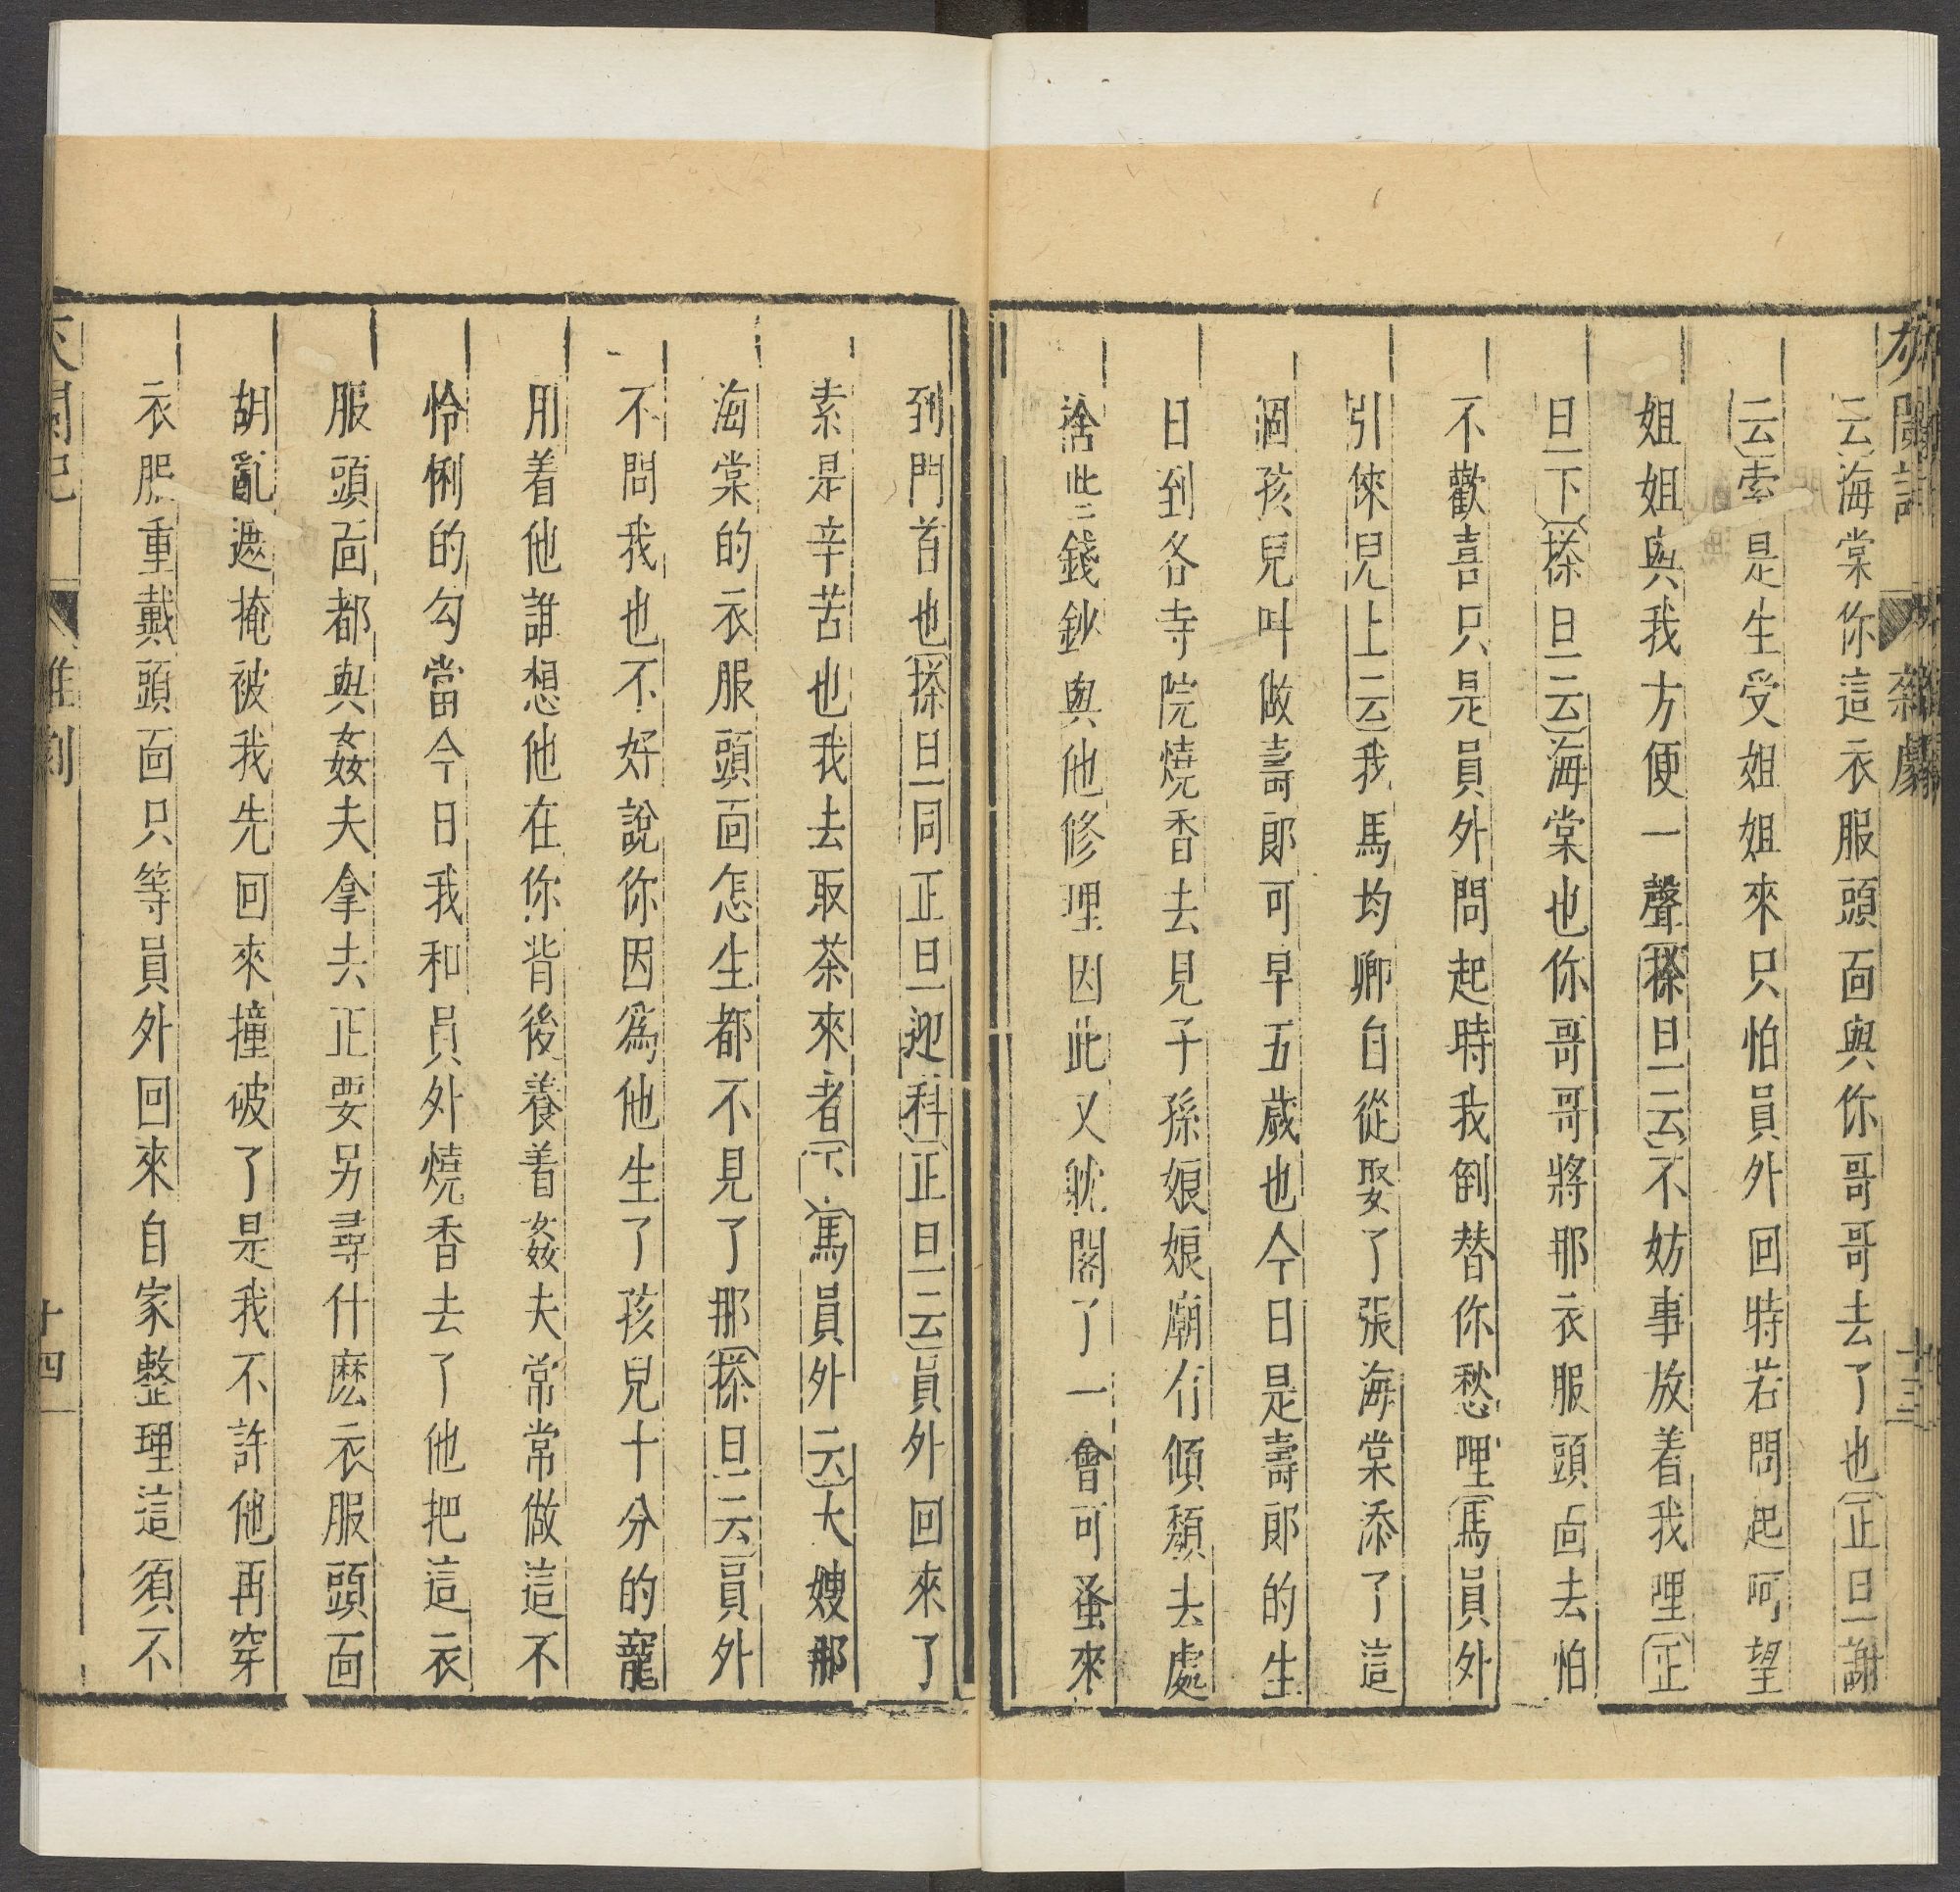 灰闌記 雜劇 十三
云海棠你這衣服頭面與你哥哥去了也正旦謝
云索是生受姐姐來只怕員外回時若問起呵望
姐姐與我方便一聲搽旦云不妨事放着我哩正
旦下搽旦云海棠也你哥哥將那衣服頭面去怕
不歡喜只是員外問起時我倒替你愁哩馬員外
引倈兒上云我馬均卿自從娶了張海棠添了這
個孩兒叫做壽郎可早五歲也今日是壽郎的生
日到各寺院燒香去見子孫娘娘廟有傾頹去處
捨些錢鈔與他修理因此又躭閣了一會可蚤來
到門首也搽旦同正旦迎科正旦云員外回來了
索是辛苦也我去取茶來者下馬員外云大嫂那
海棠的衣服頭面怎生都不見了那搽旦云員外
不問我也不好說你因為他生了孩兒十分的寵
用着他誰想他在你背後養着姦夫常常做這不
伶俐的勾當今日我和員外燒香去了他把這衣
服頭面都與姦夫拿去正要另尋什麽衣服頭面
胡亂遮掩被我先回來撞破了是我不許他再穿
衣服重戴頭面只等員外回來自家整理這須不
灰闌記 雜劇 十四